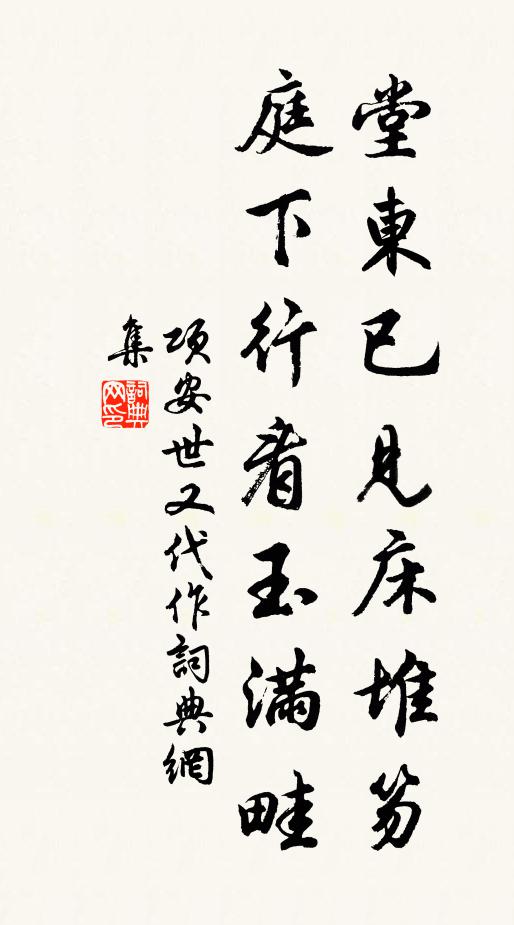 堂東已見床堆笏
庭下行看玉滿畦
項安世又代作詞典網
集
詞典網印